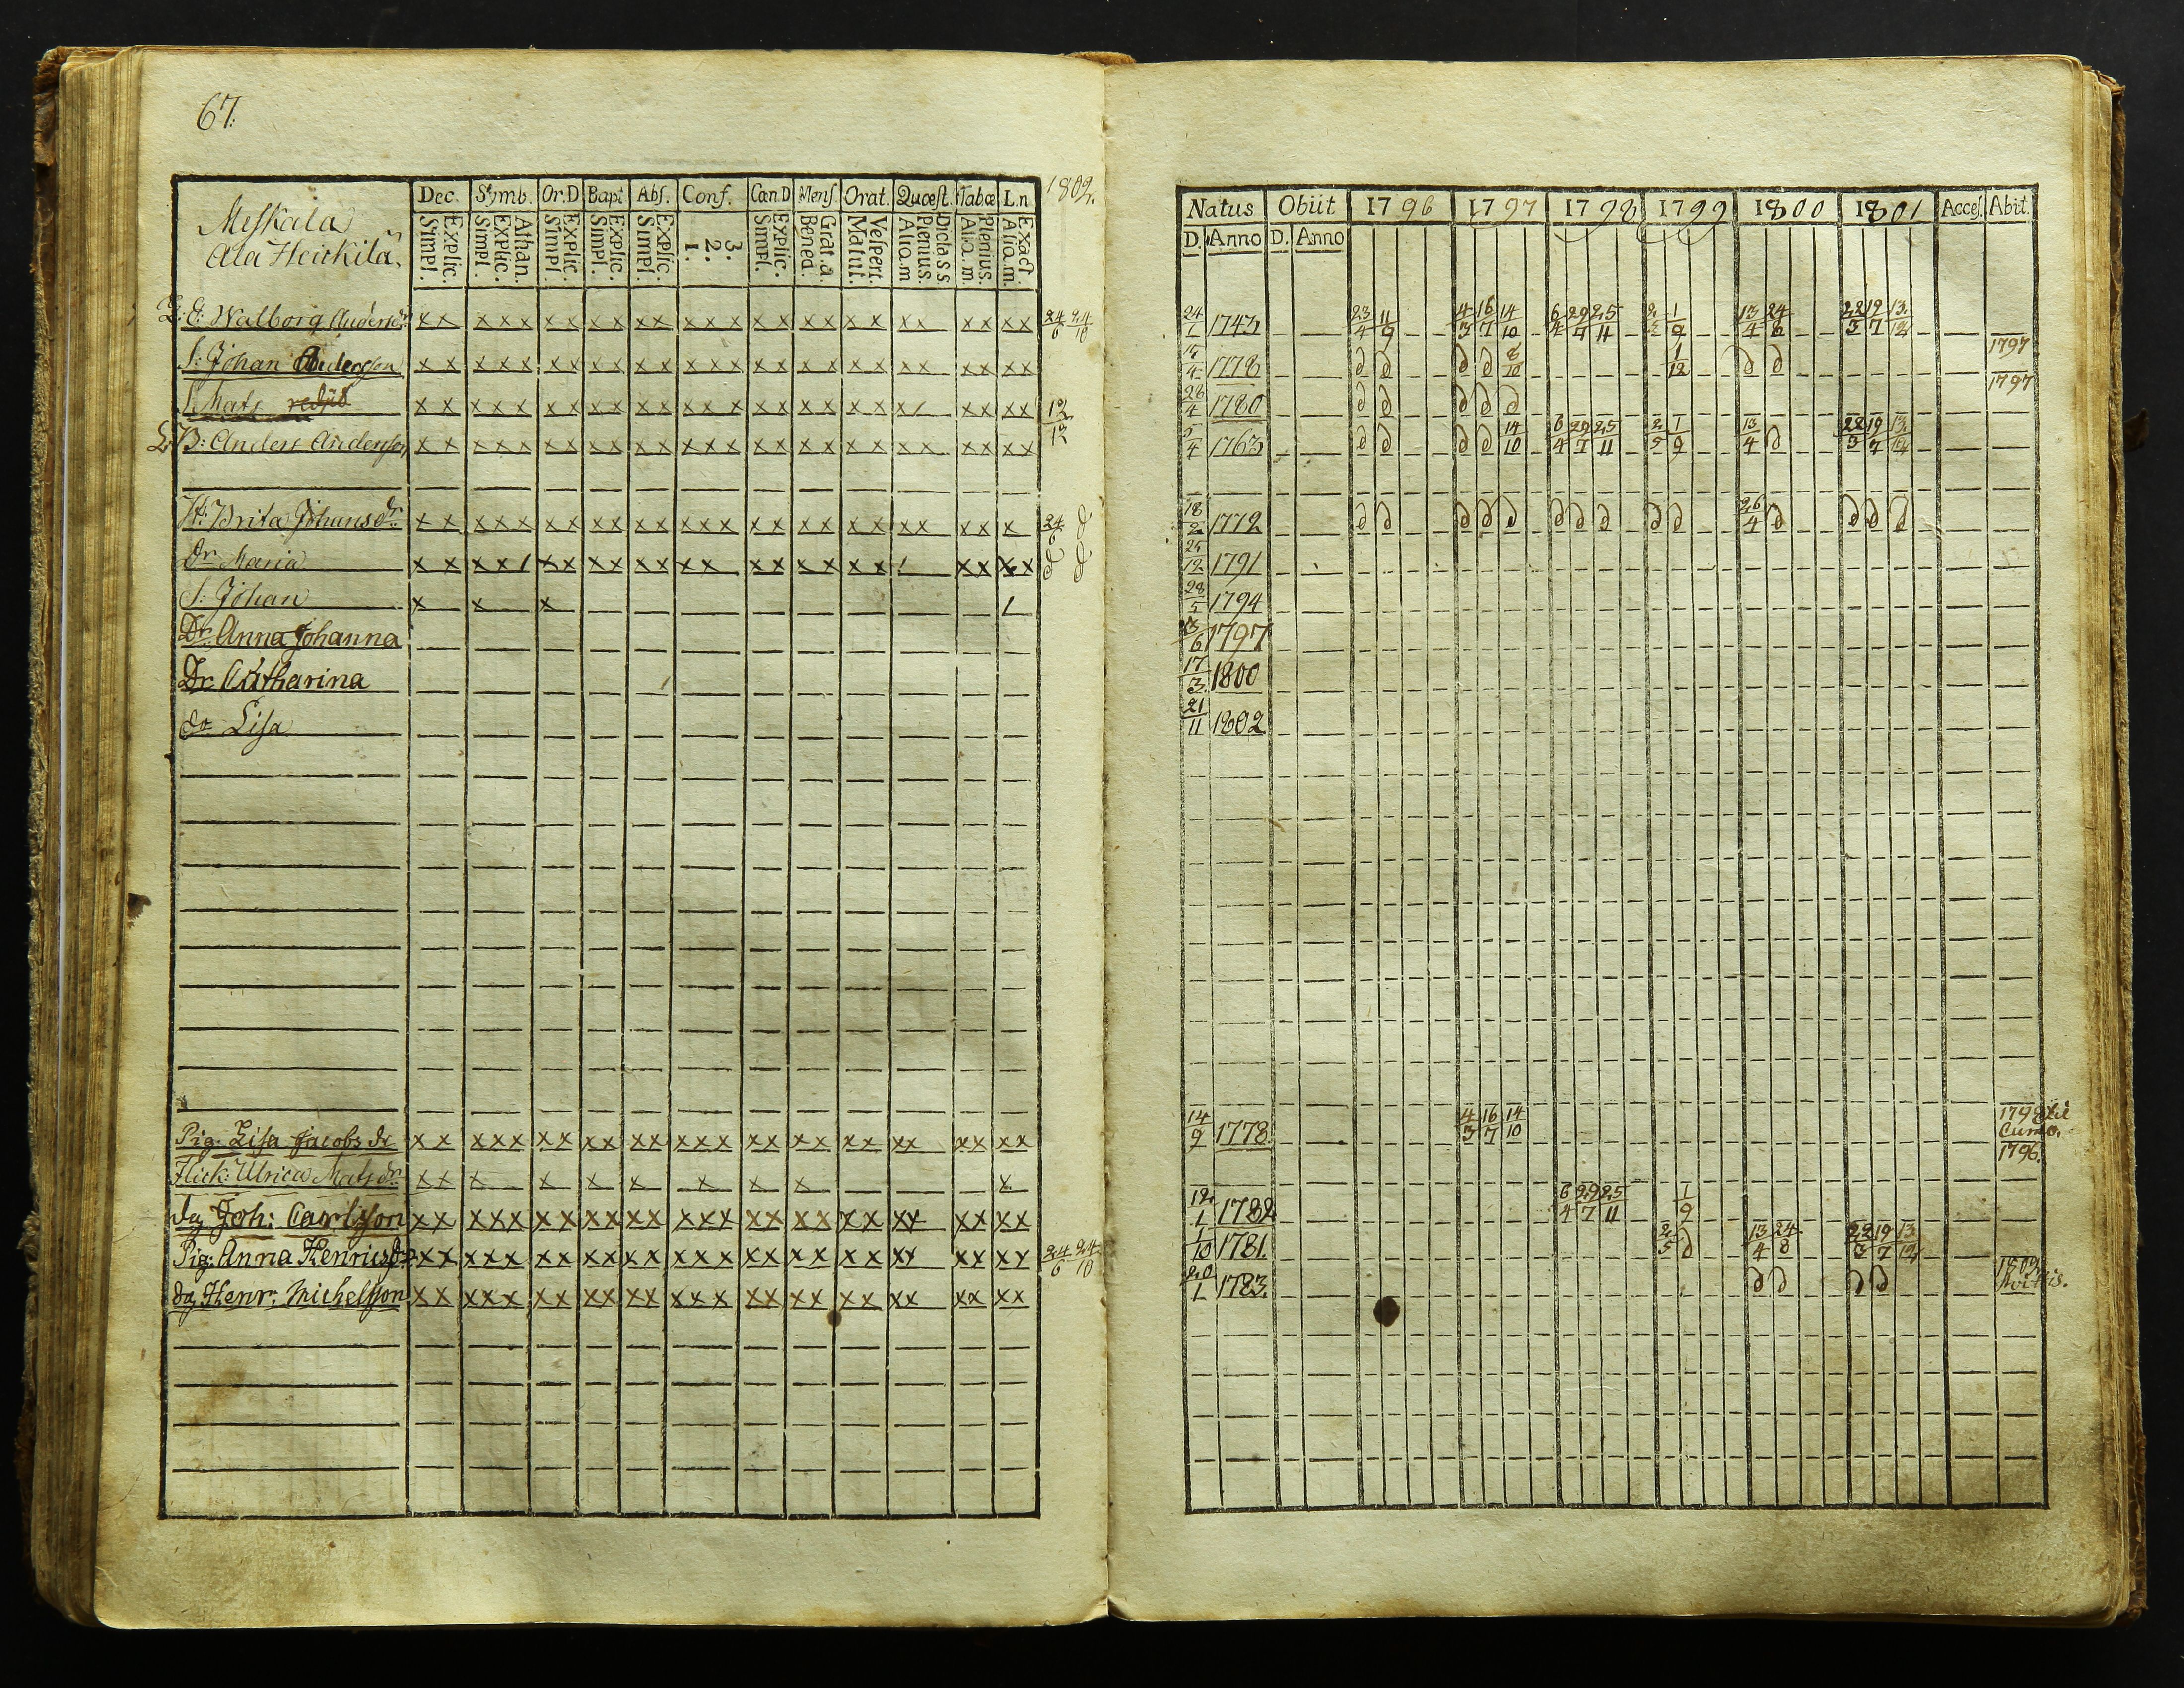 67.
Dec. Symb. Or.D Bapt Abs. Conf. Can.D Mens. Orat. Quœst. Tabœ L.n 1802.
Meskala
Ala Heickilä.
Explic. Simpl. Athan. Explic. Simpl. Explic. Simpl. Explic. Simpl. Explic. Simpl. 3. 2. 1. Explic. Simpl. Grat.a. Bened. Vespert. Matut. Dictass Plenius. Aliq.m Plenius. Aliq.m. Exact. Aliq.m.
E: Walborg Andersdr x x x x x x x x x x x x x x x x x x x x x x x x x x x 24/6 24/10
S: Johan Andersson x x x x x x x x x x x x x x x x x x x x x x x x x x
S. Mats x x x x x x x x x x x x x x x x x x x x x x x x x
B: Anders Andersson x x x x x x x x x x x x x x x x x x x x x x x x x x
H: Brita Johansdr x x x x x x x x x x x x x x x x x x x x x x x x x
Dr Maria x x x x / x x x x x x x x x x x x x x / x x x x
S: Johan x x x /
Dr. Anna Johanna
Dr. Catharina
dr Lisa
Pig. Lisa Jacobs dr x x x x x x x x x x x x x x x x x x x x x x x x x x
Flick: Ulrica Mats dr x x x x x x x x x x
dg Joh: Carlsson x x x x x x x x x x x x x x x x x x x x x x x x x x
Pig: Anna Henricsdr x x x x x x x x x x x x x x x x x x x x x x x x x x 24/6 24/10
dg Henr: Michelsson x x x x x x x x x x x x x x x x x x x x x x x x x x
Natus Obiit 1796 1797 1798 1799 1800 1801 Acces. Abit.
D. Anno D. Anno
24/1 1743 23/4 11/9 4/3 16/7 14/10 6/4 29/7 25/11 2/5 1/9 13/4 24/8 22/3 19/7 13/12
1778 8/10 1/12 1797
28/4 1780 1797
5/4 1763 14/10 6/4 29/7 25/11 2/5 1/9 13/4 22/3 19/7 13/12
18/2 1772 26/4
1791
28/5 1794
1797
17/3 1800
21/11 1802
14/9 1778 4/3 16/7 14/10 1798 til
Cumo.
1796.
12/1 1782 6/4 29/7 25/11 1/9
1/10 1781. 2/5 13/4 24/8 22/3 19/7 13/12
20/1 1783. 1802